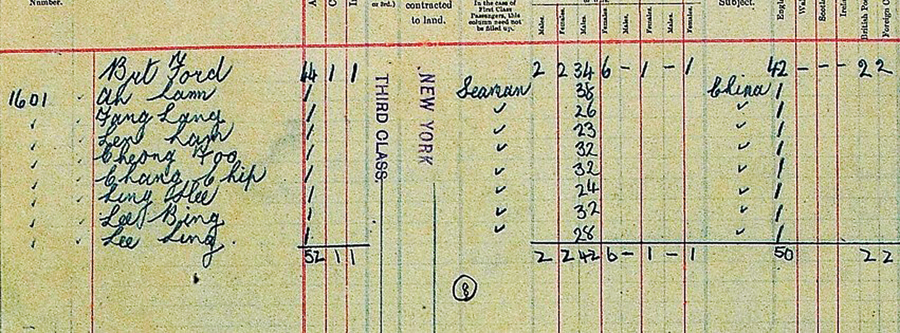 Number.
or 3rd.)
contracted to land.
In the case of First Class Passengers, this column need not be filled up.
Males.
Females.
Males.
Females.
Males.
Females.
Males.
Females.
Subject.
British Po
Foreign C
Brt Ford 44 1 1 2 2 34 6 - 1 - 1 42 - - - 2 2
1601 Ah Lam 1 Seaman 38 China 1
Fang Lang 1 " 26 " 1
Len Lam 1 " 23 " 1
Cheong Foo 1 " 32 " 1
Chang Chip 1 " 32 " 1
Ling Hee 1 " 24 " 1
Lee Bing 1 " 32 " 1
Lee Ling. 1 " 28 " 1
THIRD CLASS.
NEW YORK
52 1 1 2 2 42 6 - 1 - 1 50 2 2
8